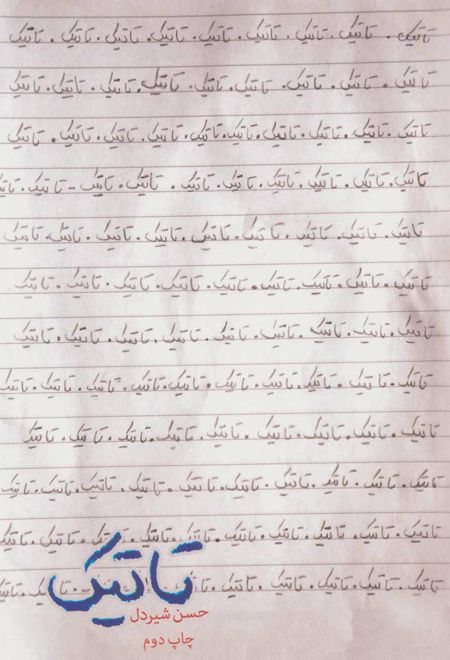 تاتیک . تاتیک . تاتیک . تاتیک . تاتیک . تاتیک . تاتیک . تاتیک . تاتیک
تاتیک . تاتیک . تاتیک . تاتیک . تاتیک . تاتیک . تاتیک . تاتیک . تاتیک
تاتیک . تاتیک . تاتیک . تاتیک . تاتیک . تاتیک . تاتیک . تاتیک . تاتیک . تاتیک
تاتیک . تاتیک . تاتیک . تاتیک . تاتیک . تاتیک . تاتیک . تاتیک . تاتیک
تاتیک . تاتیک . تاتیک . تاتیک . تاتیک . تاتیک . تاتیک . تاتیک . تاتیک
تاتیک . تاتیک . تاتیک . تاتیک . تاتیک . تاتیک . تاتیک . تاتیک . تاتیک
تاتیک . تاتیک . تاتیک . تاتیک . تاتیک . تاتیک . تاتیک . تاتیک . تاتیک
تاتیک . تاتیک . تاتیک . تاتیک . تاتیک . تاتیک . تاتیک . تاتیک . تاتیک . تاتیک
تاتیک . تاتیک . تاتیک . تاتیک . تاتیک . تاتیک . تاتیک . تاتیک . تاتیک
تاتیک . تاتیک . تاتیک . تاتیک . تاتیک . تاتیک . تاتیک . تاتیک . تاتیک . تاتیک
تاتیک . تاتیک . تاتیک . تاتیک . تاتیک . تاتیک . تاتیک . تاتیک . تاتیک . تاتیک
تاتیک . تاتیک . تاتیک . تاتیک . تاتیک
تاتیک
حسن شیردل
چاپ دوم